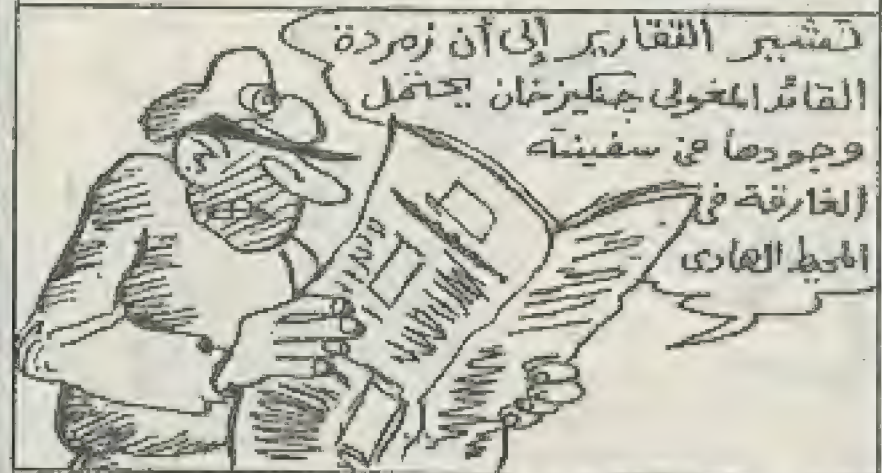 تشير التقارير إلى أن زمردة
القائد المغولي جنكيزخان يحتمل
وجودها في سفينته
الغارقة في
المحيط الهادى